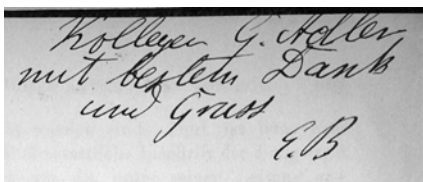 Kollegen G. Adler
mit bestem Dank
und Gruss
E. B